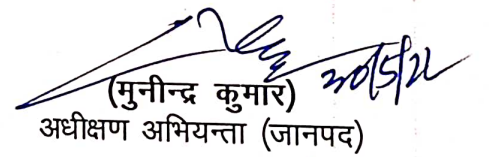 30/5/22
(मुनीन्द्र कुमार)
अधीक्षण अभियन्ता (जानपद)